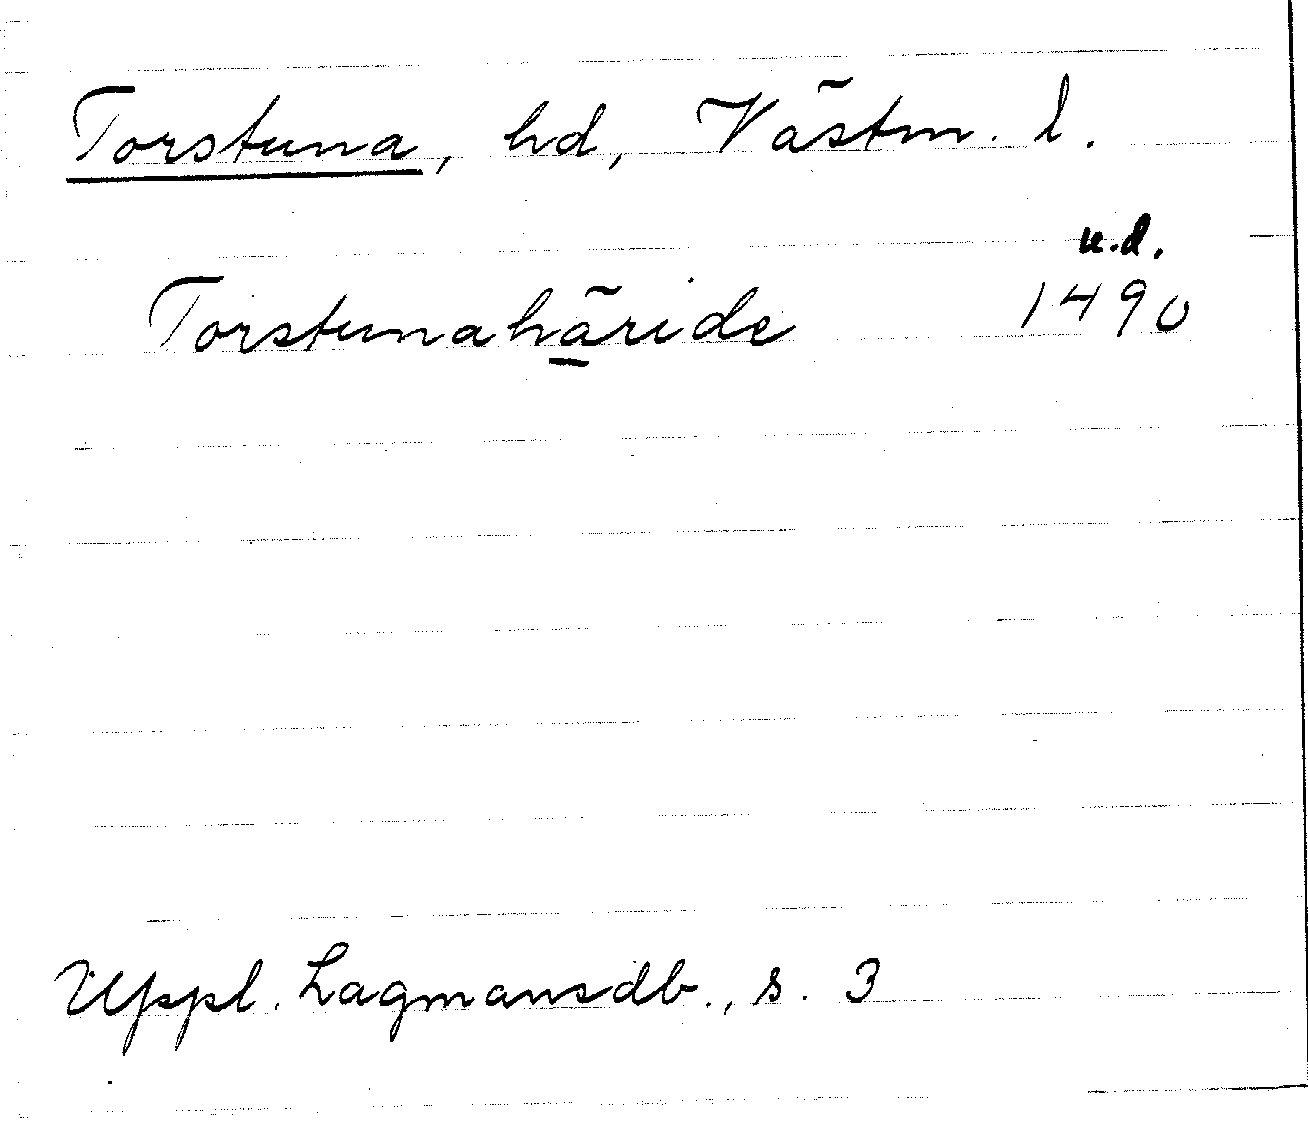 Torstuna, hd, Västm. l.
u.d.
Torstunahäride 1490
Uppl. Lagmansdb., s. 3